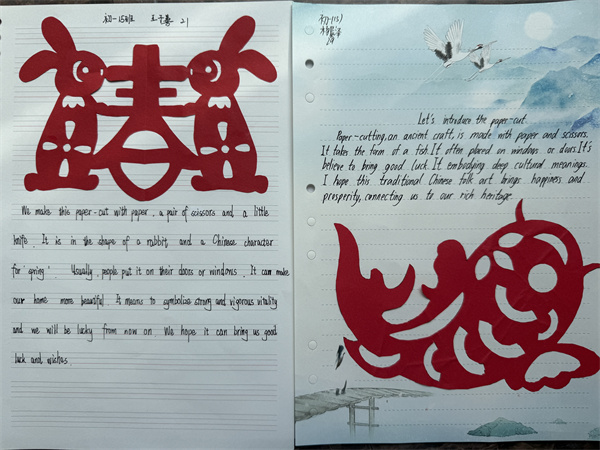 初一15班
21
春
We make this paper-cut with paper, a pair of scissors and a little
knife. It is in the shape of a rabbit, and a Chinese character
for spring". Usually people put it on their doors or windows. It can make
our home more beautiful. It means to symbolize strong and vigorous vitality
and we will be lucky from now on. We hope it can bring us good
luck and wishes.
初一(15)
Let's introduce the paper-cut.
Paper-cutting, an ancient craft, is made with paper and scissors.
It takes the form of a fish. It often placed on windows or doors. It's
believe to bring good luck. It embodying deep cultural meanings.
I hope this traditional Chinese folk art brings happiness and
prosperity, connecting us to our rich heritage.